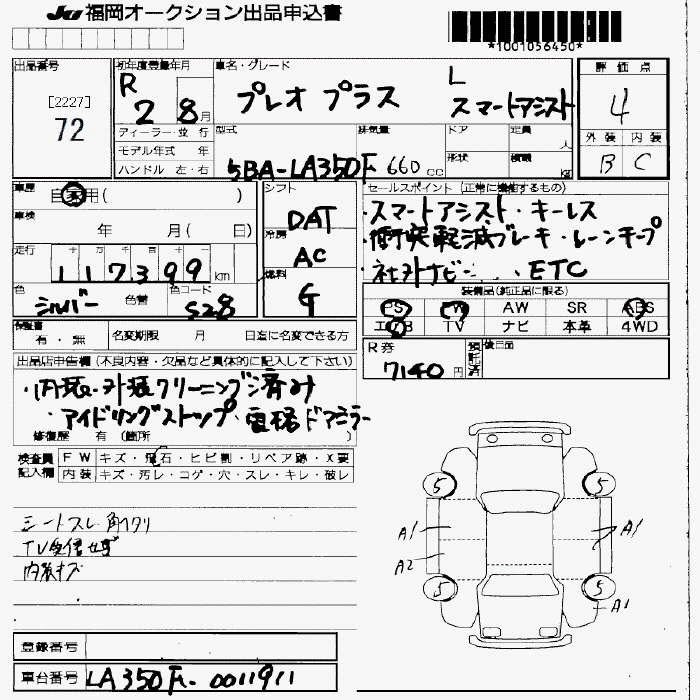 JU 福岡オークション出品申込書
*1001056450*
出品番号
[2227]
72
初年度登録年月
R 2 8月
車名・グレード
プレオ プラス
L
スマートアシスト
評価点
4
外装 内装
B C
ディーラー・並行
モデル年式 年
ハンドル 左・右
型式
5BA-LA350F
排気量
660 cc
ドア
定員
人
形状
積載
kg
車歴
自家用( )
車検
年 月( 日)
走行
十 万 千 百 十 一
117399 km
色
シルバー
色替
色コード
S28
シフト
DAT
冷房
AC
燃料
G
セールスポイント (正常に機能するもの)
・スマートアシスト・キーレス
・衝突軽減ブレーキ・レーンキープ
・社外ナビ ETC
装備品(純正品に限る)
PS PW AW SR ABS
エアB TV ナビ 本革 4WD
保証書
有・無
名変期限 月 日迄に名変できる方
R券
7140円
預託済
後日品
出品店申告欄(不良内容・欠品など具体的に記入して下さい)
・内装・外装クリーニング済み
・アイドリングストップ・電格ドアミラー
修復歴 有 (箇所
検査員記入欄
FW キズ・飛石・ヒビ割・リペア跡・X要
内装 キズ・汚レ・コゲ・穴・スレ・キレ・破レ
シートスレ 角スリ
TV受信せず
内装キズ
5 5
A1 A1
A2
5 5
A1
登録番号
車台番号 LA350F-0011911